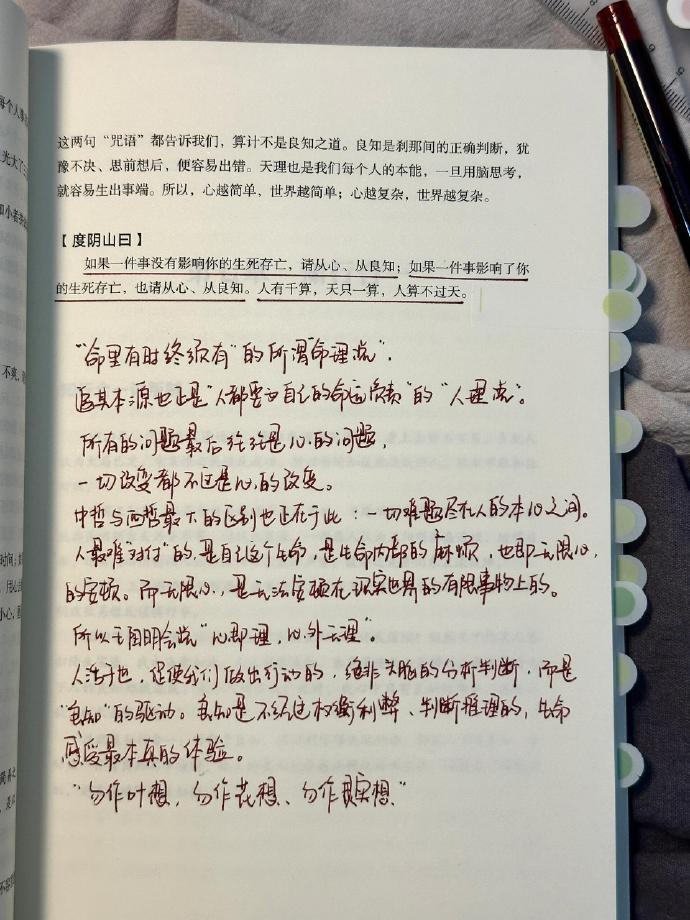 这两句“咒语”都告诉我们，算计不是良知之道。良知是刹那间的正确判断，犹
豫不决、思前想后，便容易出错。天理也是我们每个人的本能，一旦用脑思考，
就容易生出事端。所以，心越简单，世界越简单；心越复杂，世界越复杂。
【度阴山曰】
如果一件事没有影响你的生死存亡，请从心、从良知；如果一件事影响了你
的生死存亡，也请从心、从良知。人有千算，天只一算，人算不过天。
“命里有时终须有”的所谓命理说”，
追其本源也正是“人都要为自己的命运负责”的“人理说”。
所有的问题最后往往是心的问题，
一切改变都不过是心的改变。
中哲与西哲最大的区别也正在于此：一切难题尽在人的本心之间。
人最难“对付”的，是自己这个生命，是生命内部的麻烦，也即无限心，
的安顿。而无限心，是无法安顿在现实世界的有限事物上的。
所以王阳明会说“心即理，心外无理”。
人活于世，促使我们做出行动的，绝非头脑的分析判断，而是
“良知”的驱动。良知是不经过权衡利弊、判断推理的，生命
感受最本真的体验。
“勿作叶想，勿作花想、勿作果实想”
每个人
光大了
和小者
不亮，
时间；
小心，